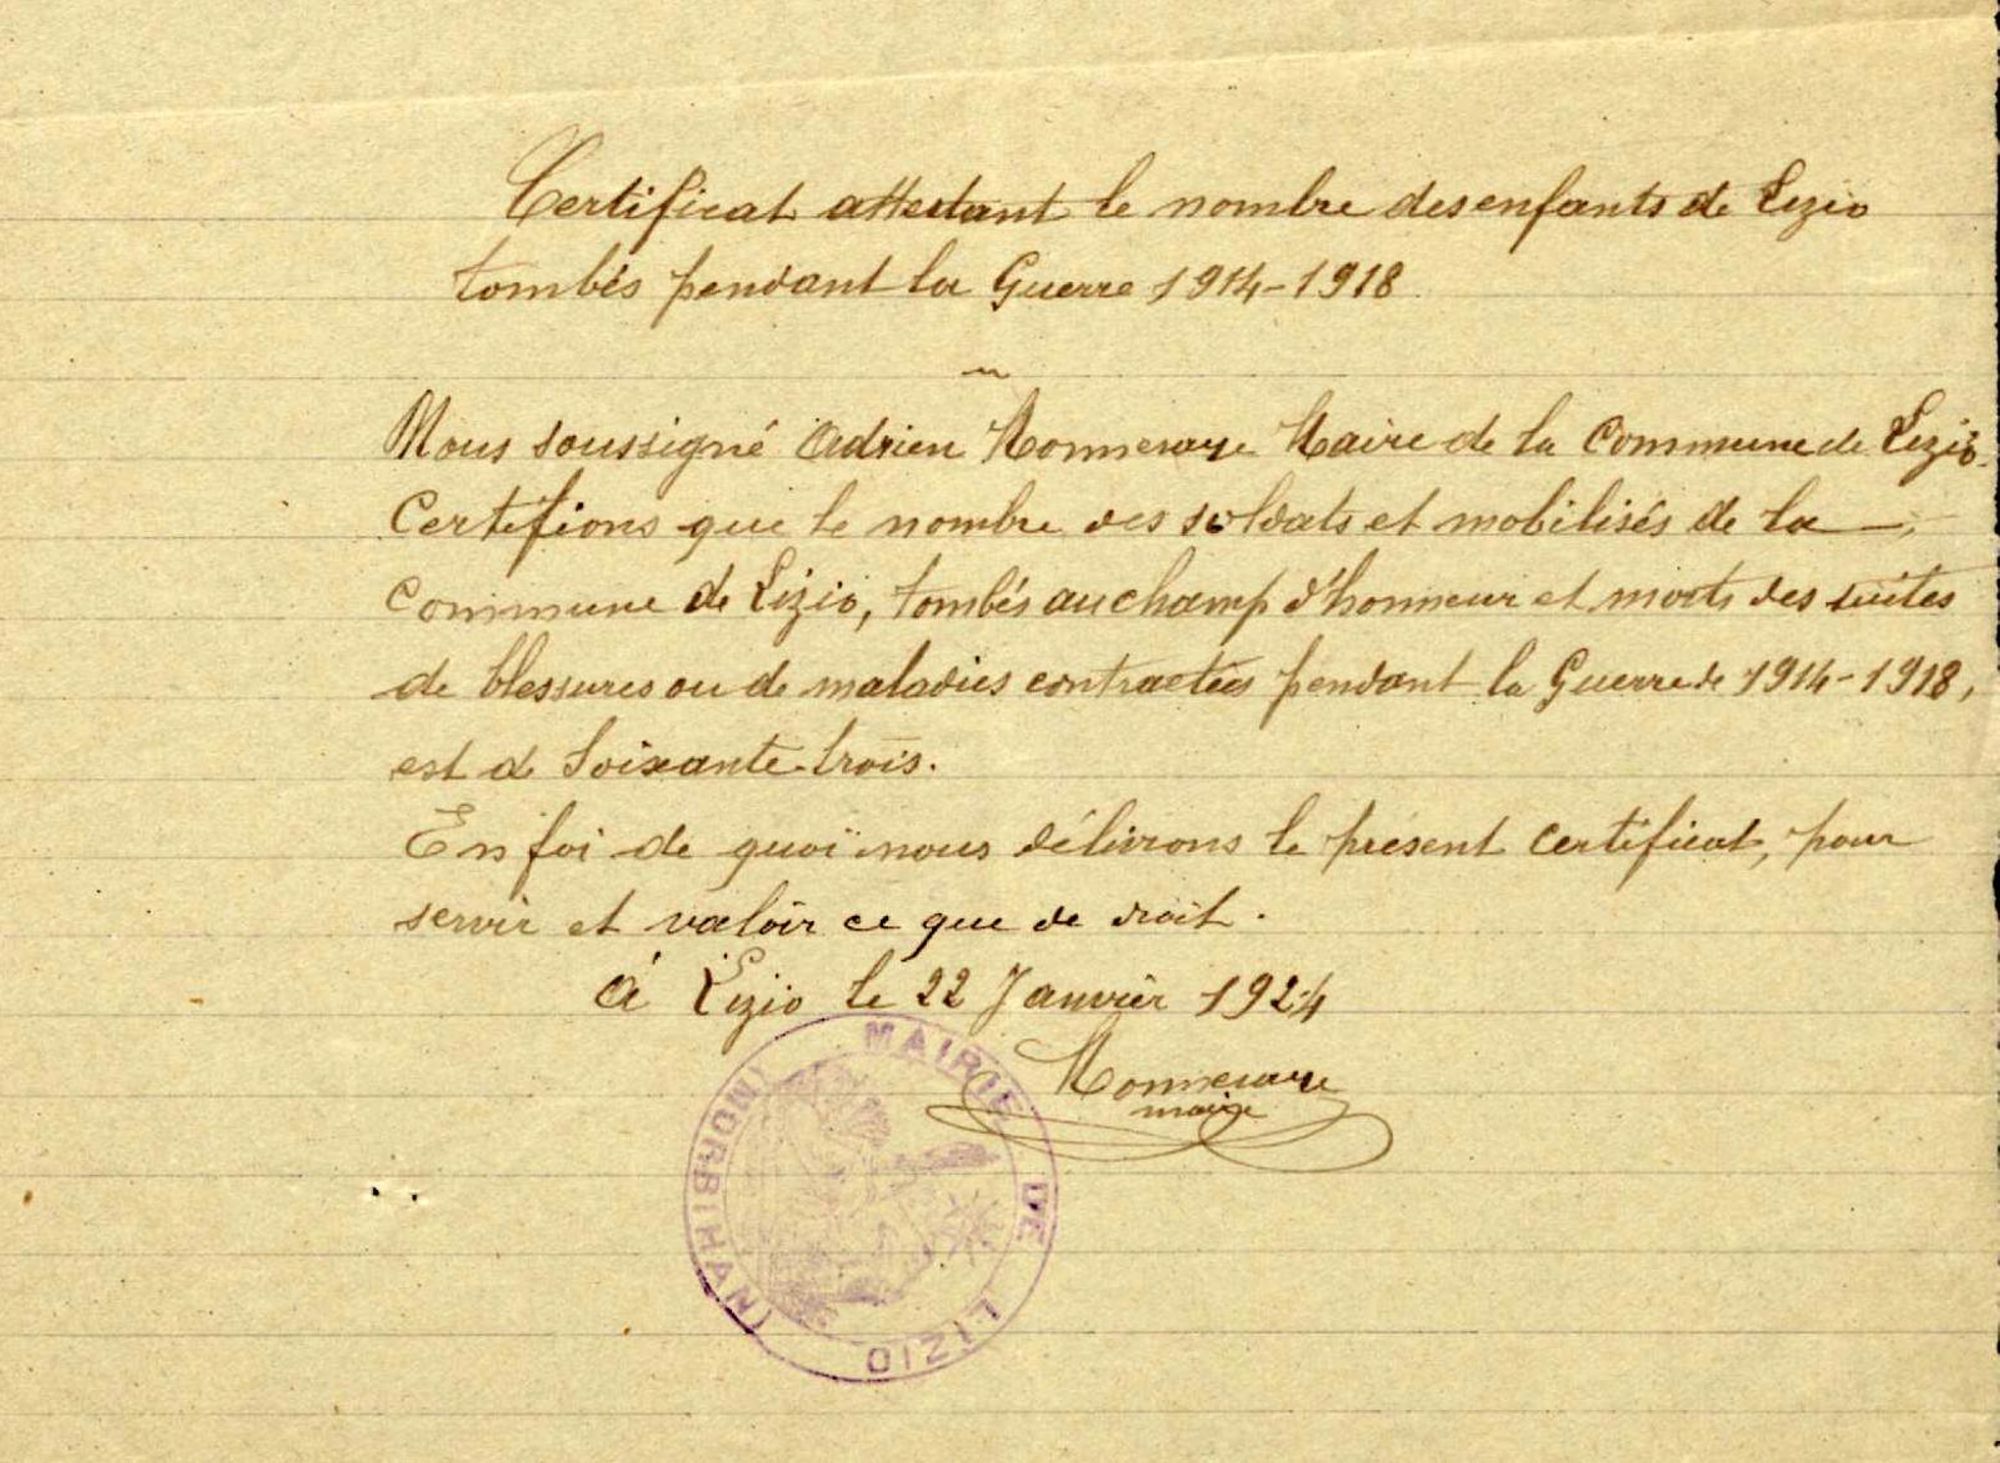 Certificat attestant le nombre des enfants de Lizio
tombés pendant la Guerre 1914-1918
Nous soussigné Adrien Monneraye Maire de la Commune de Lizio
Certifions que le nombre des soldats et mobilisés de la
Commune de Lizio, tombés au champ d'honneur et morts des suites
de blessures ou de maladies contractées pendant la Guerre de 1914-1918,
est de Soixante-trois.
En foi de quoi nous délivrons le présent certificat, pour
servir et valoir ce que de droit.
à Lizio le 22 Janvier 1924
Monneraye
maire
MAIRIE DE LIZIO
(MORBIHAN)